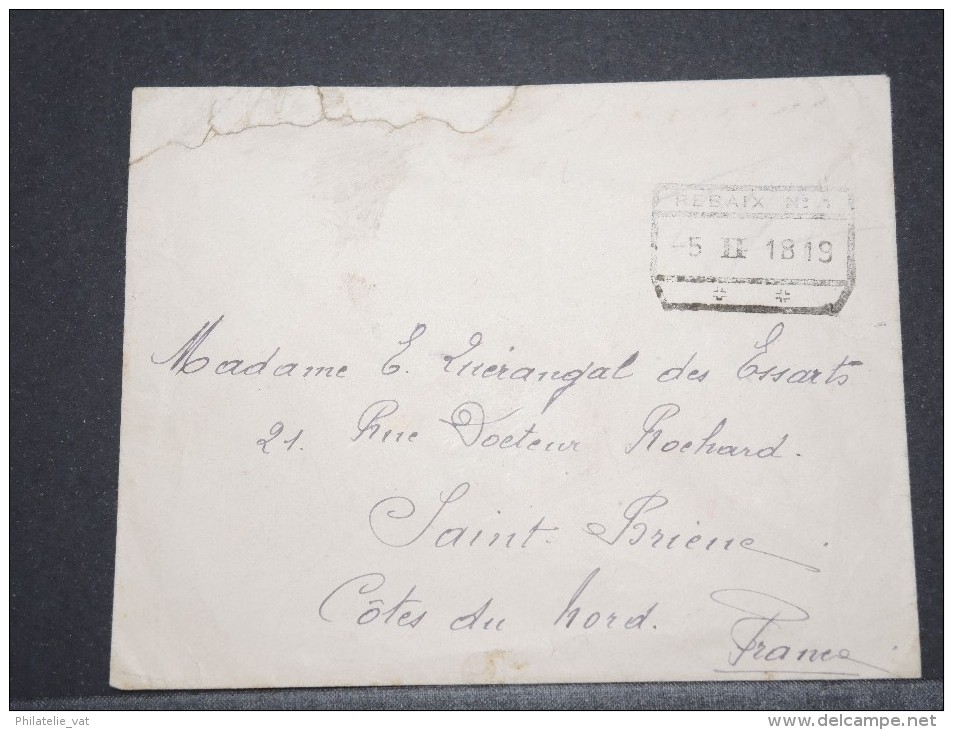 REBAIX N° 1
-5 II 1819
Madame E. Quérangal des Essarts
21. Rue Docteur Rochard.
Saint-Brieuc.
Côtes du Nord.
France.
Philatelie_vat
www.delcampe.net